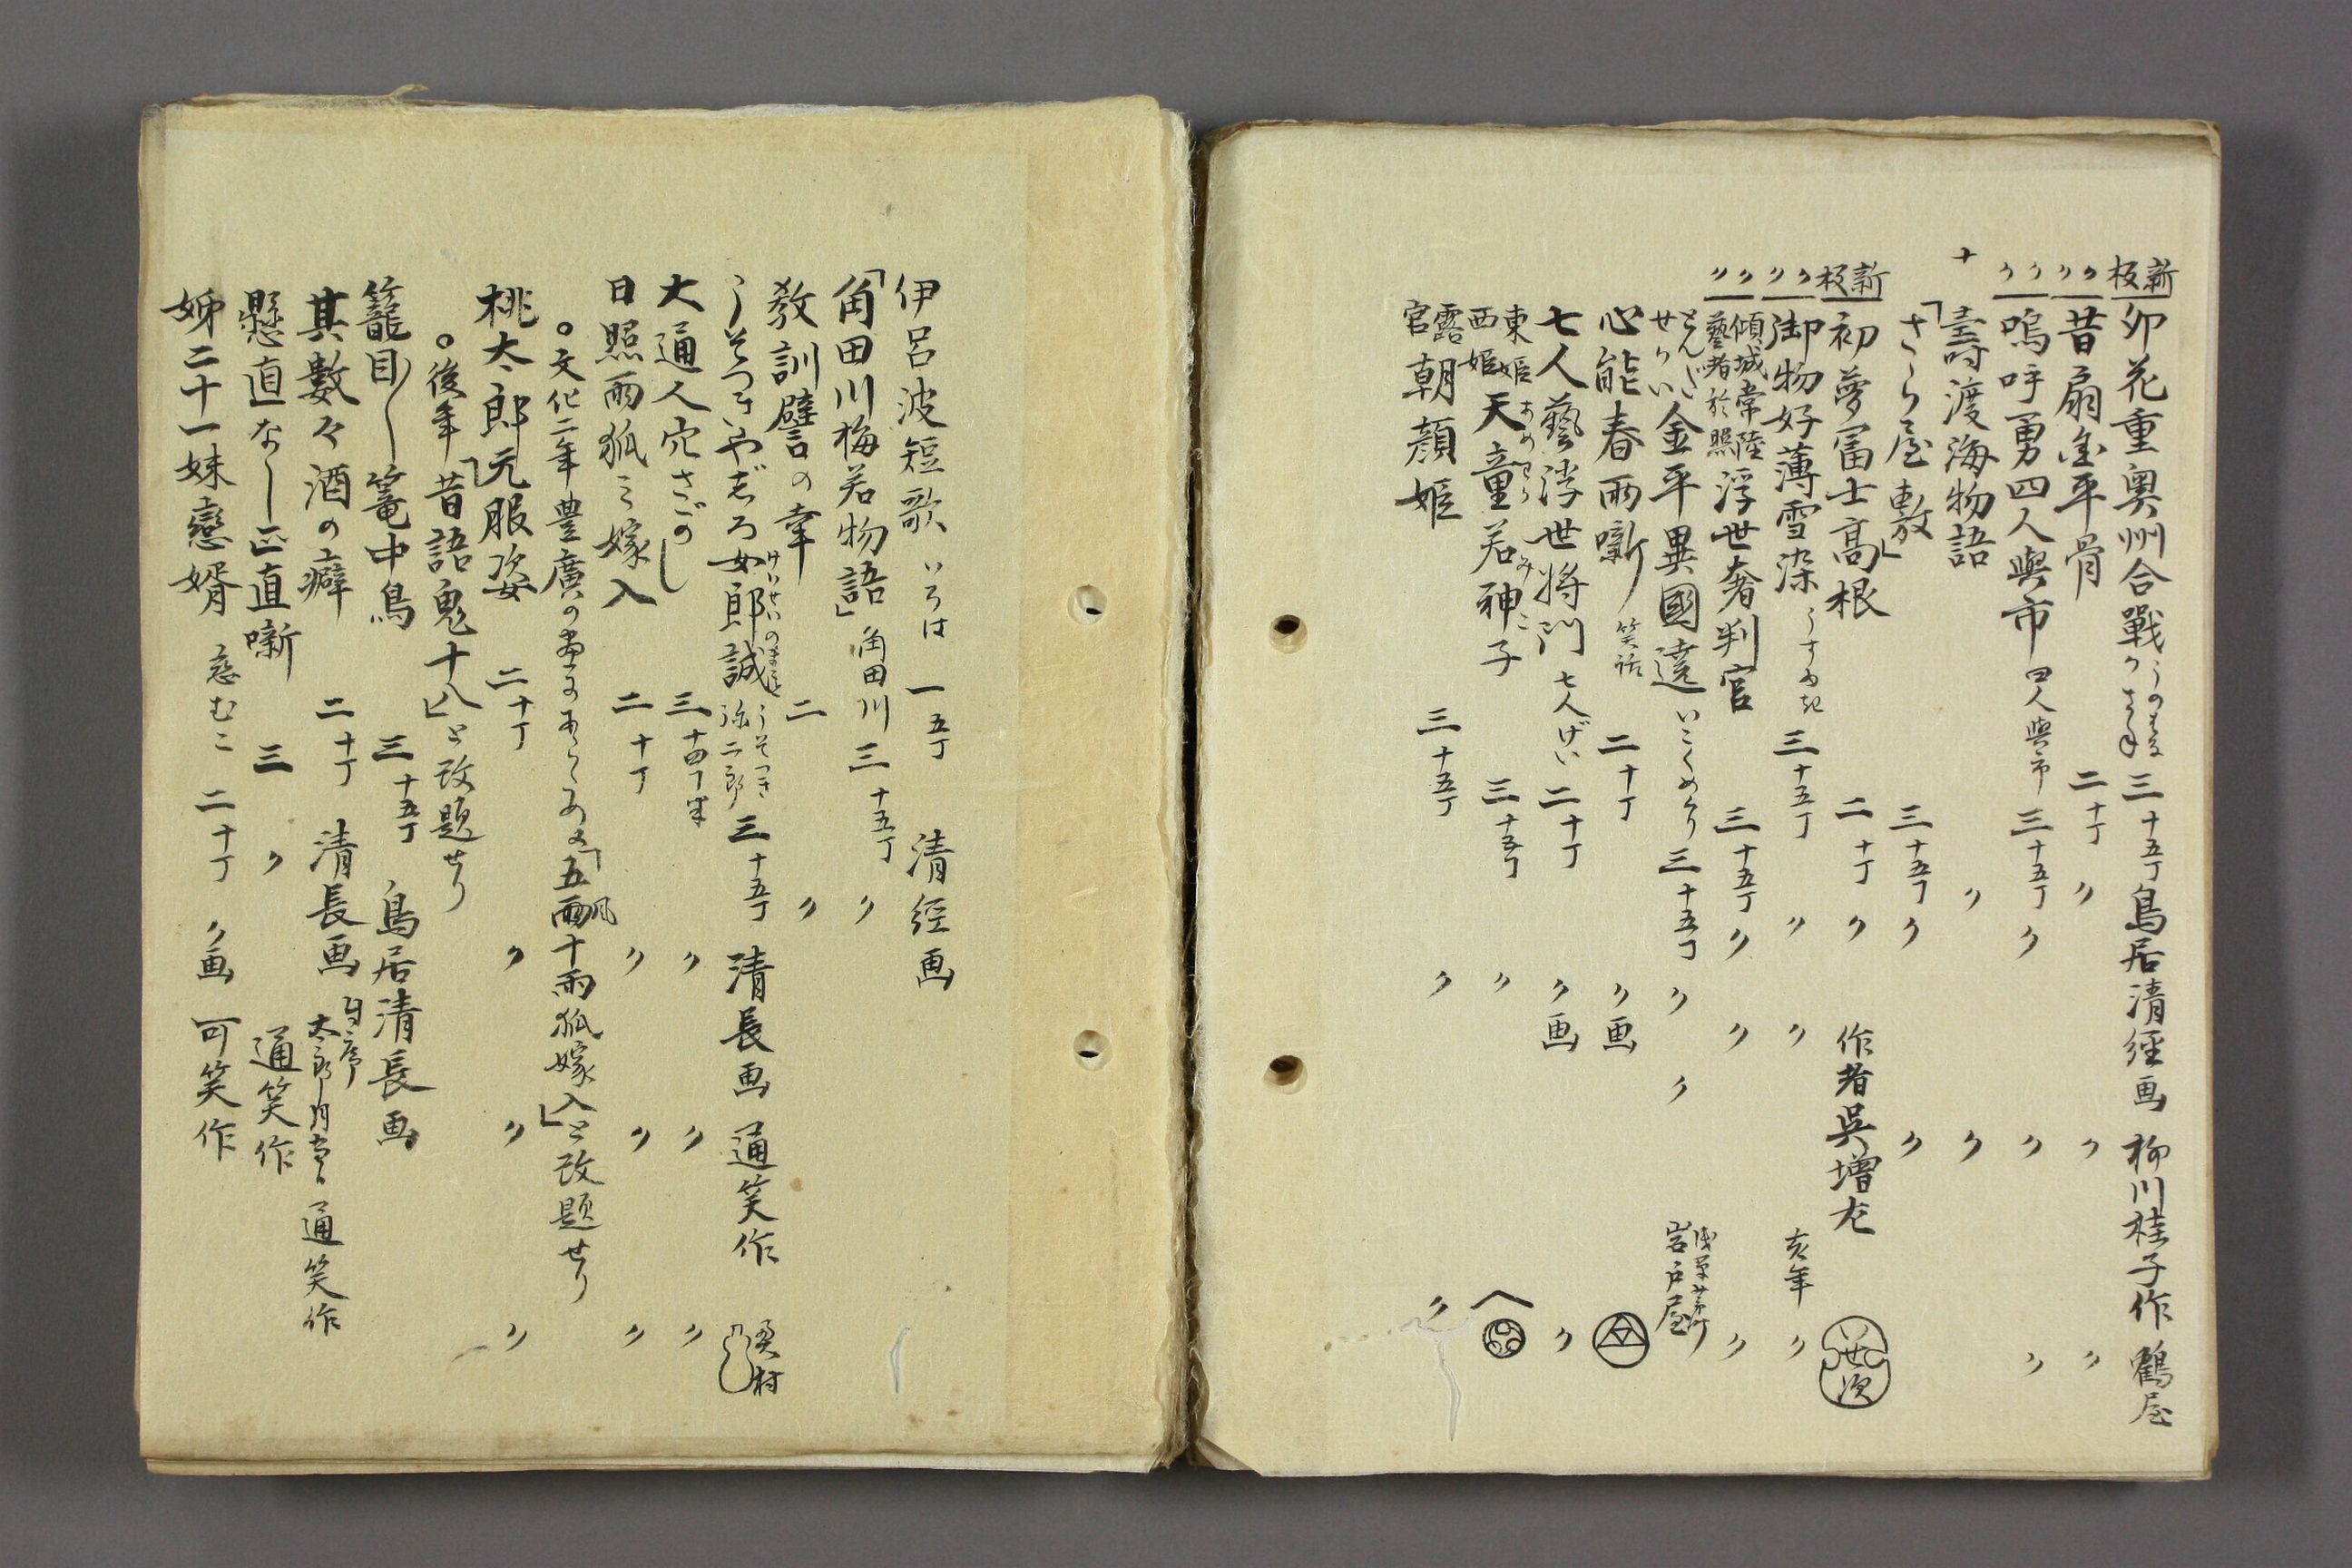 新板 卯花重奥州合戰 うのはなかさね 三 十五丁 鳥居清經画 柳川桂子作 鶴屋
〃〃 昔扇金平骨 二 十丁 〃 〃 〃
〃〃 嗚呼勇四人與市 四人與市 三 十五丁 〃 〃 〃
十 壽渡海物語 〃 〃
「さら屋敷」 三 十五丁 〃 〃
新板 初夢富士高根 二 十丁 〃 作者呉増左 いせ次
〃〃 御物好薄雪染 うすゆき 三 十五丁 〃 〃 亥年 〃
〃〃 傾城常陸 藝者於照 浮世奢判官 三 十五丁 〃 〃 〃
とんださせかい 金平異國遶 いこくめぐり 三 十五丁 〃 〃 浅草茅町 岩戸屋
心能春雨噺 笑話 二 十丁 〃画
七人藝浮世将門 七人げい 二 十丁 〃画 〃
東姫 西姫 天童若神子 あめわか みこ 三 十五丁 〃
露官 朝顔姫 三 十五丁 〃 〃
伊呂波短歌 いろは 一 五丁 清經画
「角田川梅若物語」 角田川 三 十五丁 〃
教訓譬の幸 二 〃
うそつきやぢろ女郎誠 けいせいのまこと うそつき弥二郎 三 十五丁 清長画 通笑作 奥村
大通人穴さがし 三 十四丁半 〃 〃 〃
日照雨狐之嫁入 二 十丁 〃 〃 〃
○文化二年豊廣の画にあらため又「五風雨十雨狐嫁入」と改題せり
桃太郎元服姿 二 十丁 〃 〃 〃
○後年「昔語鬼十八」と改題せり
籠目〳〵籠中鳥 三 十五丁 鳥居清長画
其數々酒の癖 二 十丁 清長画 通笑作
懸直なし正直噺 三 〃 通笑作
姊二十一妹戀婿 恋むこ 二 十丁 〃画 可笑作